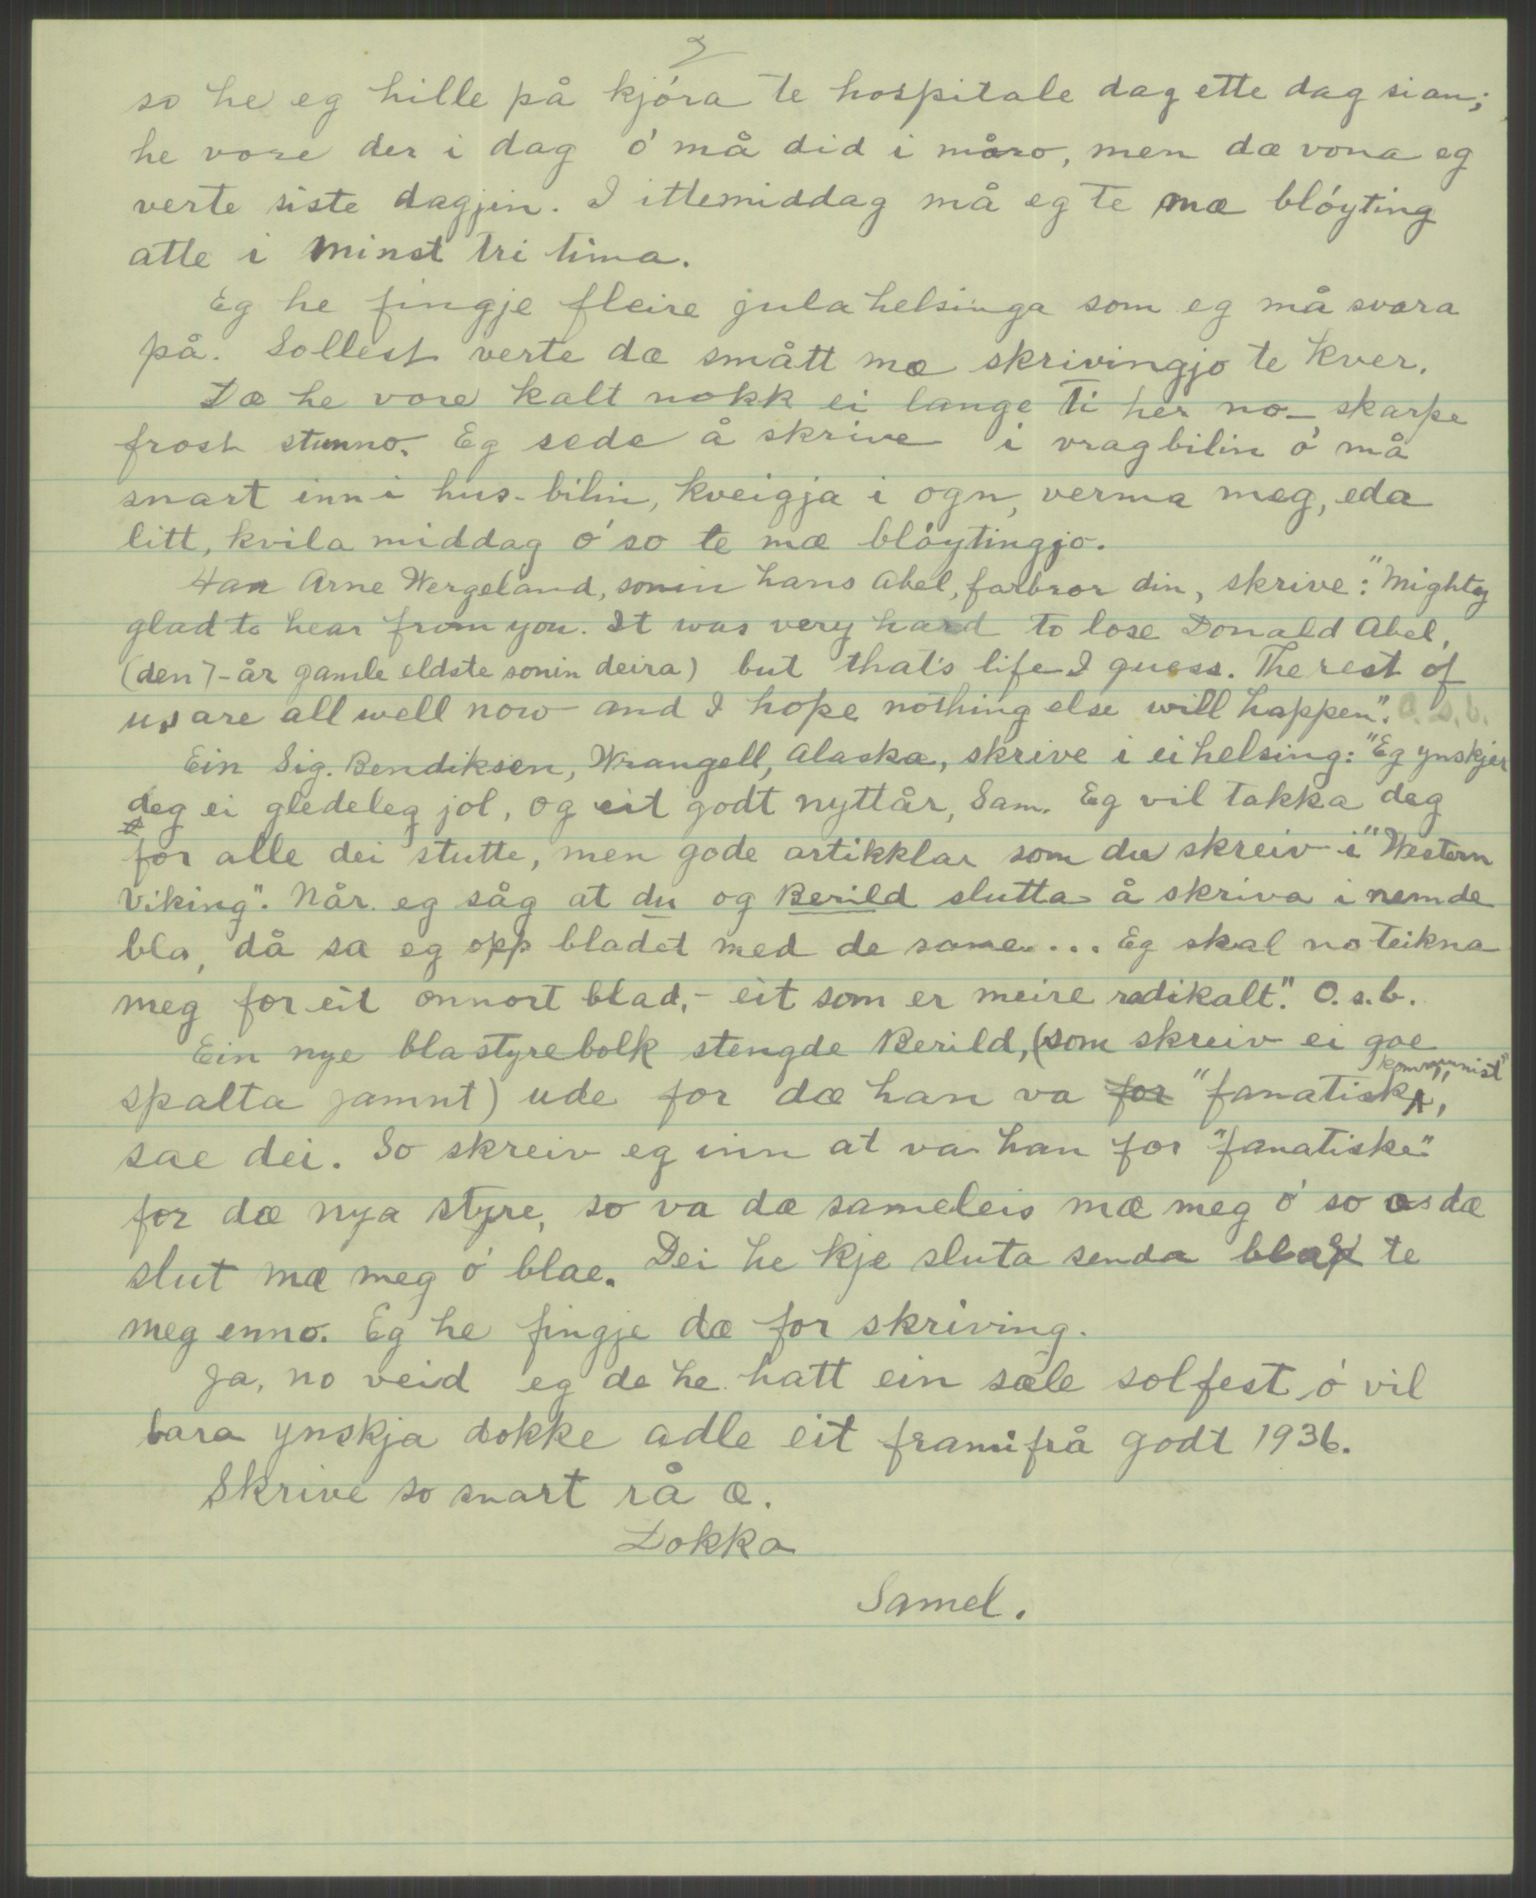 2
so he eg hille på kjóra te hospitale dag ette dag sian;
he vore der i dag ó må did i måro, men dæ vona eg
verte siste dagjin. I ittemiddag må eg te mæ blóyting
atte i minst tri tima.
Eg he fingje fleire julahelsinga som eg må svara
på. Sollest verte dæ smått mæ skrivingjo te kver.
Dæ he vore kalt nokk ei lange ti her no - skarpe
frost stunno. Eg sede å skrive i vragbilin ó må
snart inn i hus-bilin, kveigja i ogn, verma meg, eda
litt, kvila middag ó so te mæ blóytingjo.
Han Arne Wergeland, sonin hans Abel, farbror din, skrive: "Mighty
glad to hear from you. It was very hard to lose Donald Abel,
(den 7-år gamle eldste sonin deira) but that's life I guess. The rest of
us are all well now and I hope nothing else will happen". O.s.b.
Ein Sig. Bendiksen, Wrangell, Alaska, skrive i ei helsing: "Eg ynskjer
deg ei gledeleg jol, og eit godt nyttår, Sam. Eg vil takka deg
for alle dei stutte, men gode artikklar som du skreiv i "Western
Viking". Når eg såg at du og Berild slutta å skriva i nemde
bla, då sa eg opp bladet med de same... Eg skal no teikna
meg for eit onnort blad, - eit som er meire radikalt". O.s.b.
Ein nye blastyrebolk stengde Berild, (som skreiv ei goe
spalta jamnt) ude for dæ han va for "fanatisk kommunist",
sae dei. So skreiv eg inn at va han for "fanatiske"
for dæ nya styre, so va dæ sameleis mæ meg ó so as dæ
slut mæ meg ó blae. Dei he kje sluta senda bla te
meg enno. Eg he fingje dæ for skriving.
Ja, no veid eg de he hatt ein sæle solfest ó vil
bara ynskja dokke adle eit framifrå godt 1936.
Skrive so snart rå æ.
Dokka
Samel.